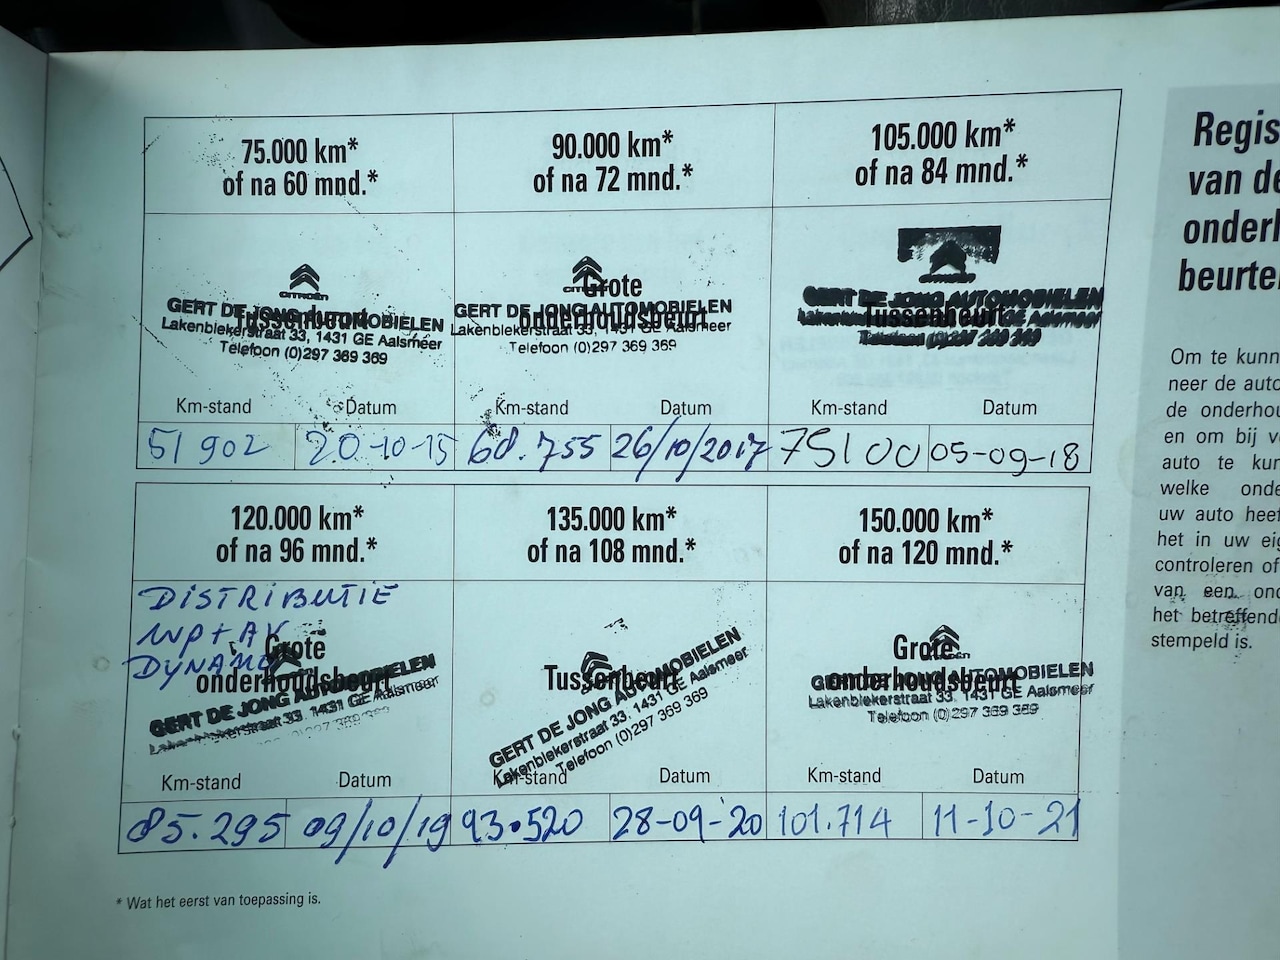 75.000 km*
of na 60 mnd.*
CITROËN
GERT DE JONG AUTOMOBIELEN
Tussenbeurt
Lakenblekerstraat 33, 1431 GE Aalsmeer
Telefoon (0)297 369 369
Km-stand Datum
51902 20-10-15
90.000 km*
of na 72 mnd.*
Grote
onderhoudsbeurt
GERT DE JONG AUTOMOBIELEN
Lakenblekerstraat 33, 1431 GE Aalsmeer
Telefoon (0)297 369 369
Km-stand Datum
60.755 26/10/2017
105.000 km*
of na 84 mnd.*
GERT DE JONG AUTOMOBIELEN
Tussenbeurt
GE Aalsmeer
Telefoon (0)297 369 369
Km-stand Datum
75100 05-09-18
120.000 km*
of na 96 mnd.*
DISTRIBUTIE
WP+AV
DYNAMO
Grote
onderhoudsbeurt
GERT DE JONG AUTOMOBIELEN
Lakenblekerstraat 33, 1431 GE Aalsmeer
Km-stand Datum
85.295 09/10/19
135.000 km*
of na 108 mnd.*
Tussenbeurt
GERT DE JONG AUTOMOBIELEN
Lakenblekerstraat 33, 1431 GE Aalsmeer
Telefoon (0)297 369 369
Km-stand Datum
93.520 28-09-20
150.000 km*
of na 120 mnd.*
Grote
CITROËN
onderhoudsbeurt
GERT DE JONG AUTOMOBIELEN
Lakenblekerstraat 33, 1431 GE Aalsmeer
Telefoon (0)297 369 369
Km-stand Datum
101.714 11-10-21
* Wat het eerst van toepassing is.
Regis
van de
onderh
beurte
Om te kunn
neer de auto
de onderhou
en om bij v
auto te kun
welke onde
uw auto heef
het in uw eig
controleren of
van een ond
het betreffende
stempeld is.